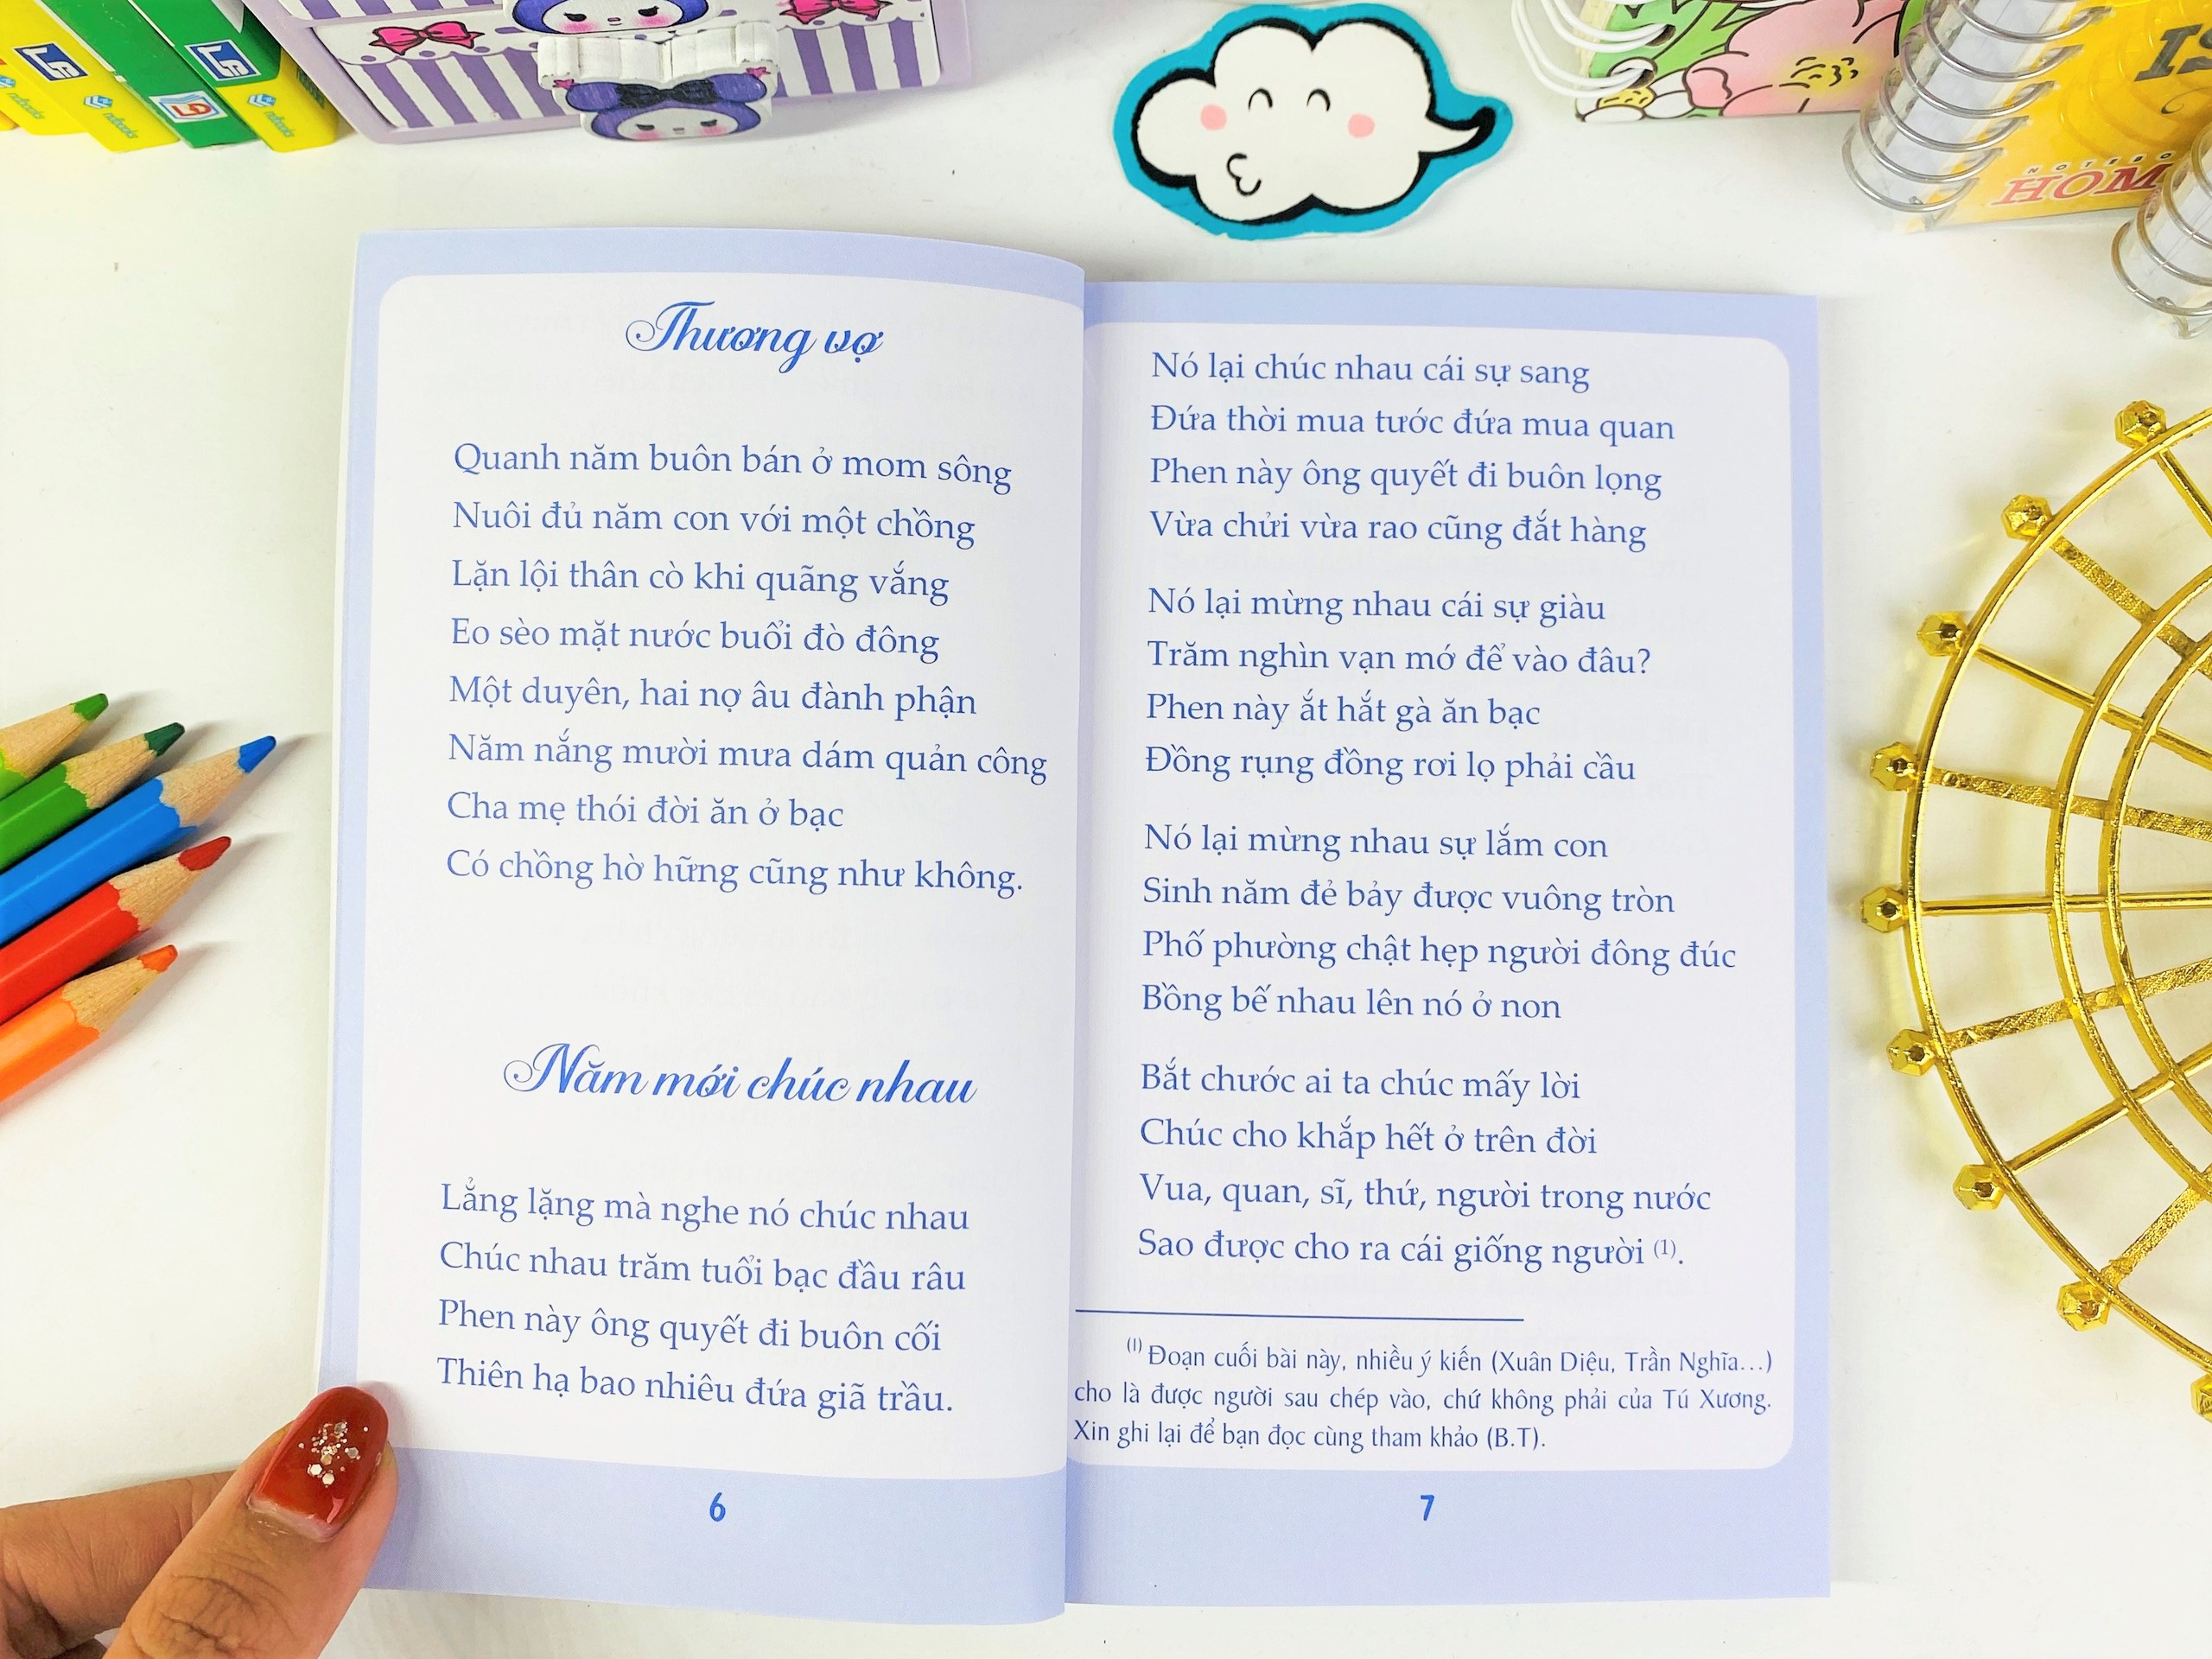 IS
NOTEBO
HOM
Thương vợ
Quanh năm buôn bán ở mom sông
Nuôi đủ năm con với một chồng
Lặn lội thân cò khi quãng vắng
Eo sèo mặt nước buổi đò đông
Một duyên, hai nợ âu đành phận
Năm nắng mười mưa dám quản công
Cha mẹ thói đời ăn ở bạc
Có chồng hờ hững cũng như không.
Năm mới chúc nhau
Lẳng lặng mà nghe nó chúc nhau
Chúc nhau trăm tuổi bạc đầu râu
Phen này ông quyết đi buôn cối
Thiên hạ bao nhiêu đứa giã trầu.
6
Nó lại chúc nhau cái sự sang
Đứa thời mua tước đứa mua quan
Phen này ông quyết đi buôn lọng
Vừa chửi vừa rao cũng đắt hàng
Nó lại mừng nhau cái sự giàu
Trăm nghìn vạn mớ để vào đâu?
Phen này ắt hắt gà ăn bạc
Đồng rụng đồng rơi lọ phải cầu
Nó lại mừng nhau sự lắm con
Sinh năm đẻ bảy được vuông tròn
Phố phường chật hẹp người đông đúc
Bồng bế nhau lên nó ở non
Bắt chước ai ta chúc mấy lời
Chúc cho khắp hết ở trên đời
Vua, quan, sĩ, thứ, người trong nước
Sao được cho ra cái giống người (1).
(1) Đoạn cuối bài này, nhiều ý kiến (Xuân Diệu, Trần Nghĩa...)
cho là được người sau chép vào, chứ không phải của Tú Xương.
Xin ghi lại để bạn đọc cùng tham khảo (B.T).
7